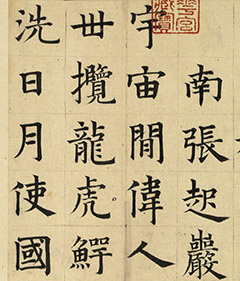 南張起巖
宇宙間偉人
丗攬龍虎鰐
洗日月使國